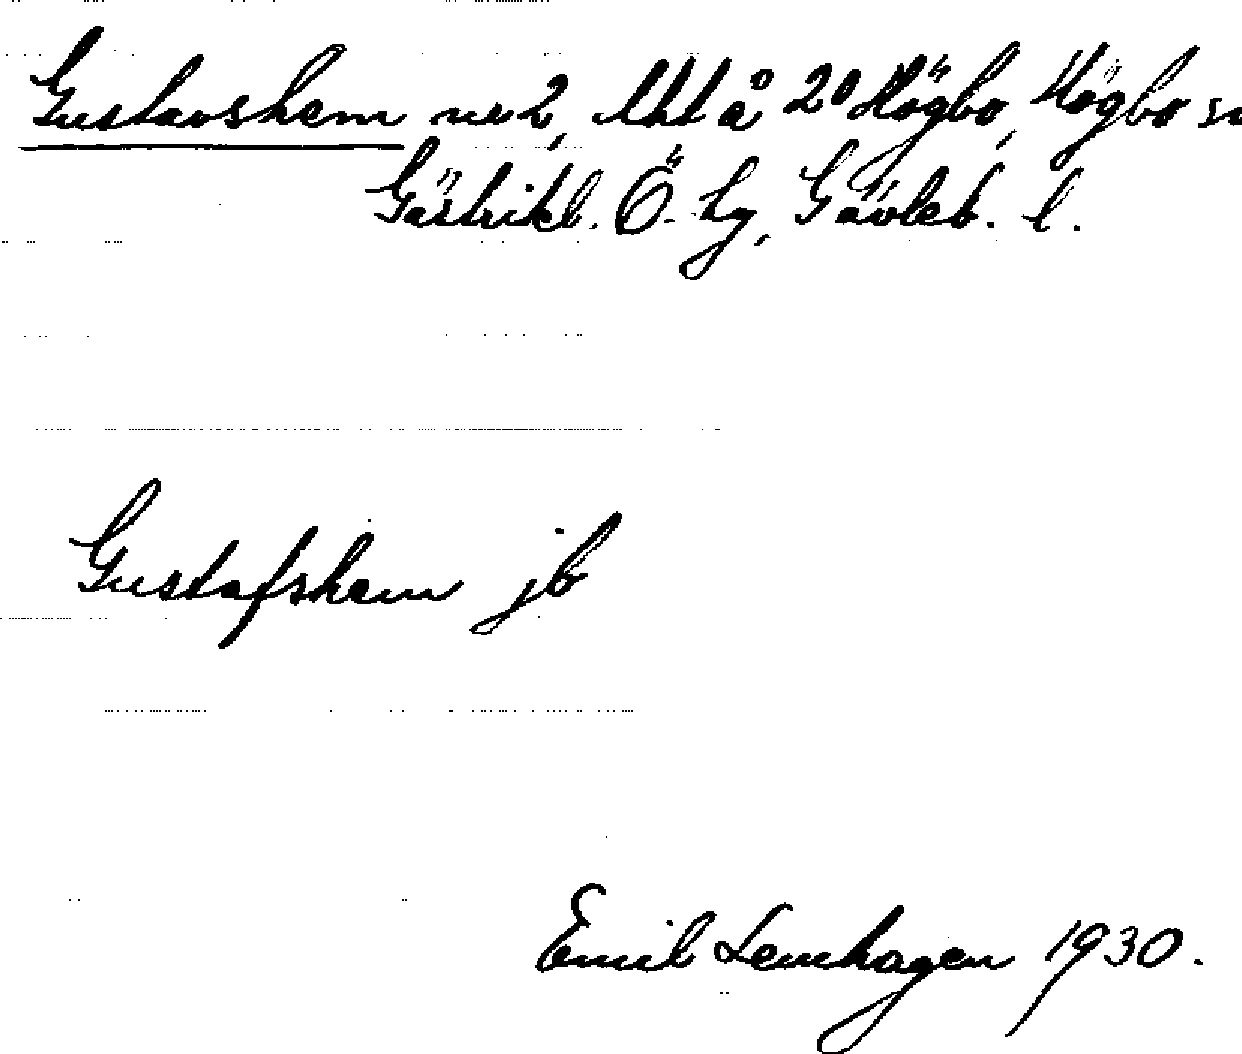 Gustavshem nr 2, lht å 20 Högbo, Högbo sn
Gästrikl. Ö. hg, Gävleb. l.
Gustafshem jb
Emil Lemhagen 1930.